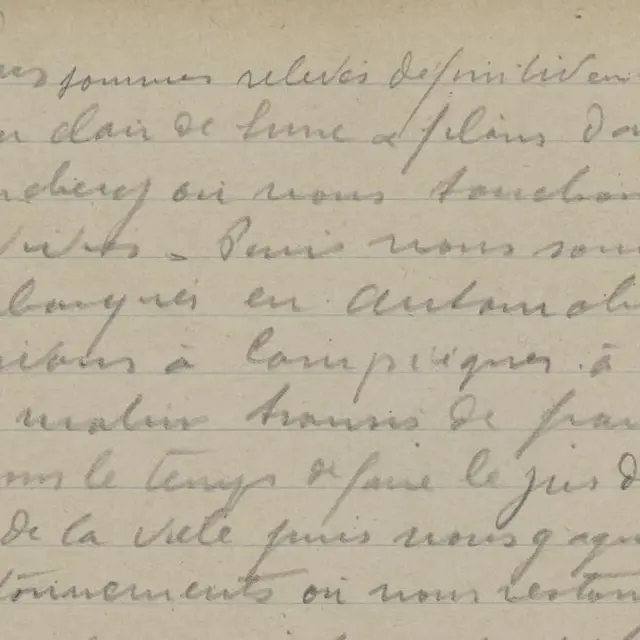 sommes relevés définitiven
clair de lune a flons da
où nous touchon
vivres. Puis nous som
barqués en automobi
à Compiègne. à
matin transis de fro
le temps de faire le jus d
de la ville puis nous gagn
tonnements où nous restons